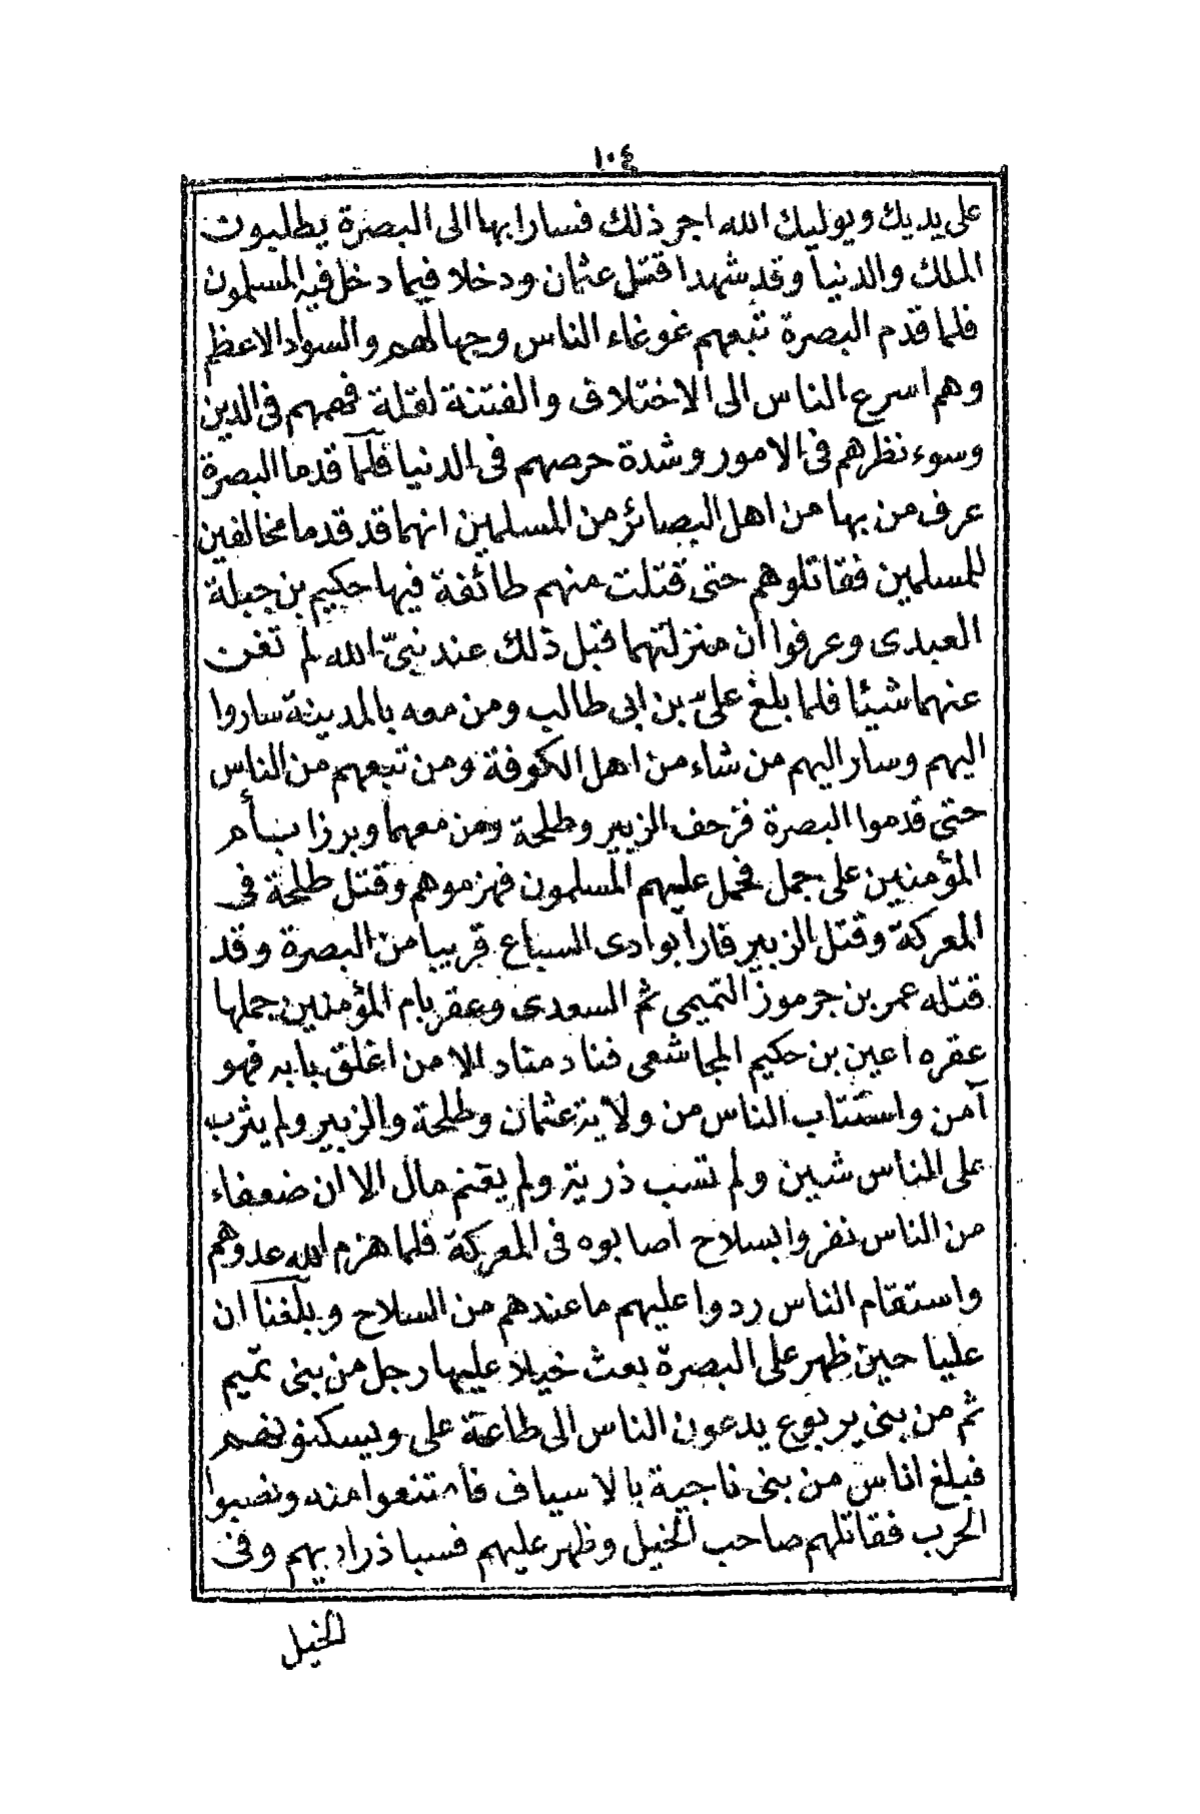 ١٠٤
على يديك ويوليك الله اجر ذلك فسارا بها الى البصرة يطلبون
الملك والدنيا وقد شهدا قتل عثمان ودخلا فيما دخل فيه المسلمون
فلما قدم البصرة تبعهم غوغاء الناس وجهالهم والسواد الاعظم
وهم اسرع الناس الى الاختلاف والفتنة لقلة فهمهم فى الدين
وسوء نظرهم فى الامور وشدة حرصهم فى الدنيا فلما قدما البصرة
عرف من بها من اهل البصائر من المسلمين انهما قد قدما مخالفين
للمسلمين فقاتلوهم حتى قتلت منهم طائفة فيها حكيم بن جبلة
العبدى وعرفوا ان منزلتهما قبل ذلك عند نبىّ الله لم تغن
عنهما شيئا فلما بلغ علىّ بن ابى طالب ومن معه بالمدينة ساروا
اليهم وسار اليهم من شاء من اهل الكوفة ومن تبعهم من الناس
حتى قدموا البصرة فزحف الزبير وطلحة ومن معهما وبرزا بأم
المؤمنين على جمل فحمل عليهم المسلمون فهزموهم وقتل طلحة فى
المعركة وقتل الزبير فارا بوادى السباع قريبا من البصرة وقد
قتله عمر بن جرموز التميمى ثم السعدى وعقر بام المؤمنين جملها
عقره اعين بن حكيم المجاشعى فناد مناد الا من اغلق بابه فهو
آمن واستتاب الناس من ولاية عثمان وطلحة والزبير ولم يثرب
على الناس شين ولم تسب ذرية ولم يغنم مال الا ان ضعفاء
من الناس نفروا بسلاح اصابوه فى المعركة فلما هزم الله عدوهم
واستقام الناس ردوا عليهم ما عندهم من السلاح وبلغنا ان
عليا حين ظهر على البصرة بعث خيلا عليها رجل من بنى تميم
ثم من بنى يربوع يدعون الناس الى طاعة على ويسكنونهم
فبلغ اناس من بنى ناجية بالاسياف فامتنعوا منه ونصبوا
الحرب فقاتلهم صاحب الخيل وظهر عليهم فسبا ذراريهم وفى
الخيل